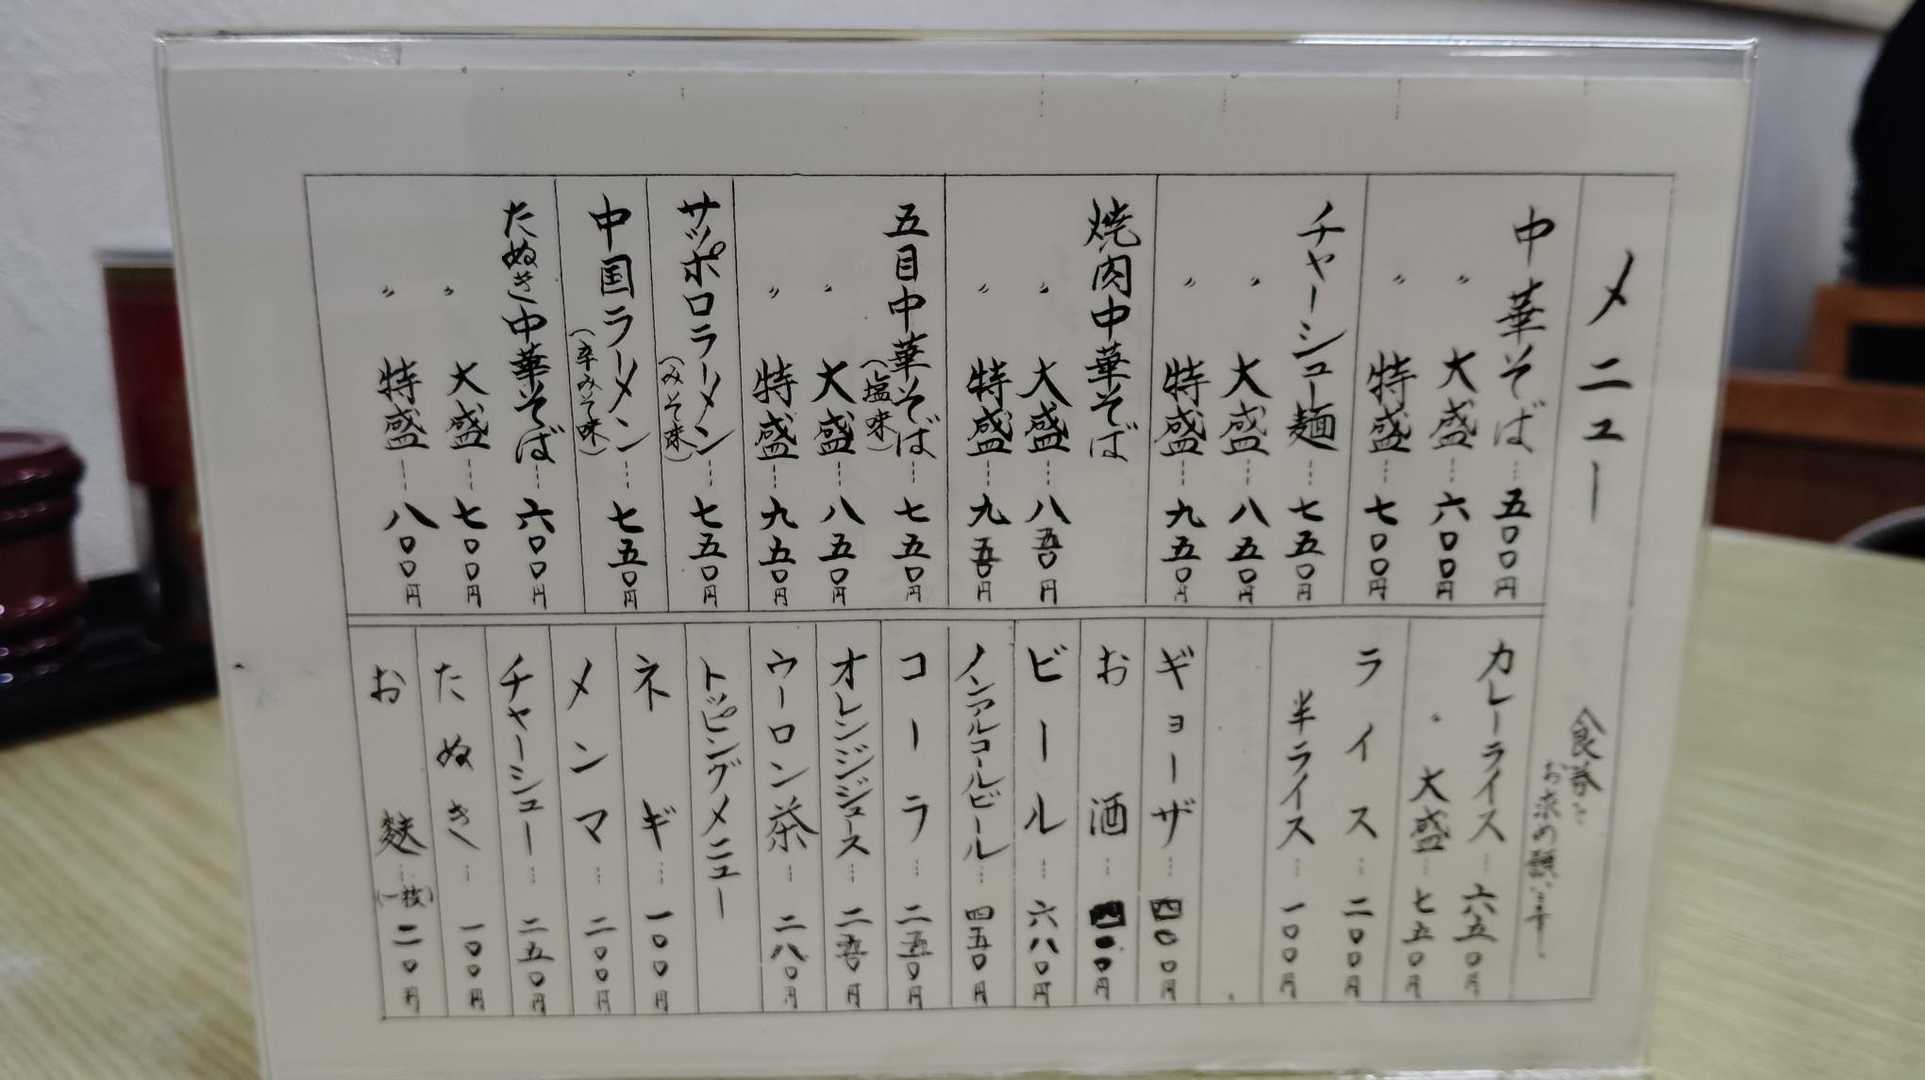 メニュー
食券をお求め願います。
中華そば…五〇〇円
〃 大盛…六〇〇円
〃 特盛…七〇〇円
チャーシュー麺…七五〇円
〃 大盛…八五〇円
〃 特盛…九五〇円
焼肉中華そば
〃 大盛…八五〇円
〃 特盛…九五〇円
五目中華そば…七五〇円
(塩味)
〃 大盛…八五〇円
〃 特盛…九五〇円
サッポロラーメン…七五〇円
(みそ味)
中国ラーメン…七五〇円
(辛みそ味)
たぬき中華そば…六〇〇円
〃 大盛…七〇〇円
〃 特盛…八〇〇円
カレーライス…六五〇円
〃 大盛…七五〇円
ライス…二〇〇円
半ライス…一〇〇円
ギョーザ…四〇〇円
お酒…四〇〇円
ビール…六八〇円
ノンアルコールビール…四五〇円
コーラ…二五〇円
オレンジジュース…二五〇円
ウーロン茶…二八〇円
トッピングメニュー
ネギ…一〇〇円
メンマ…二〇〇円
チャーシュー…二五〇円
たぬき…一〇〇円
お麩…(一枚)二〇円